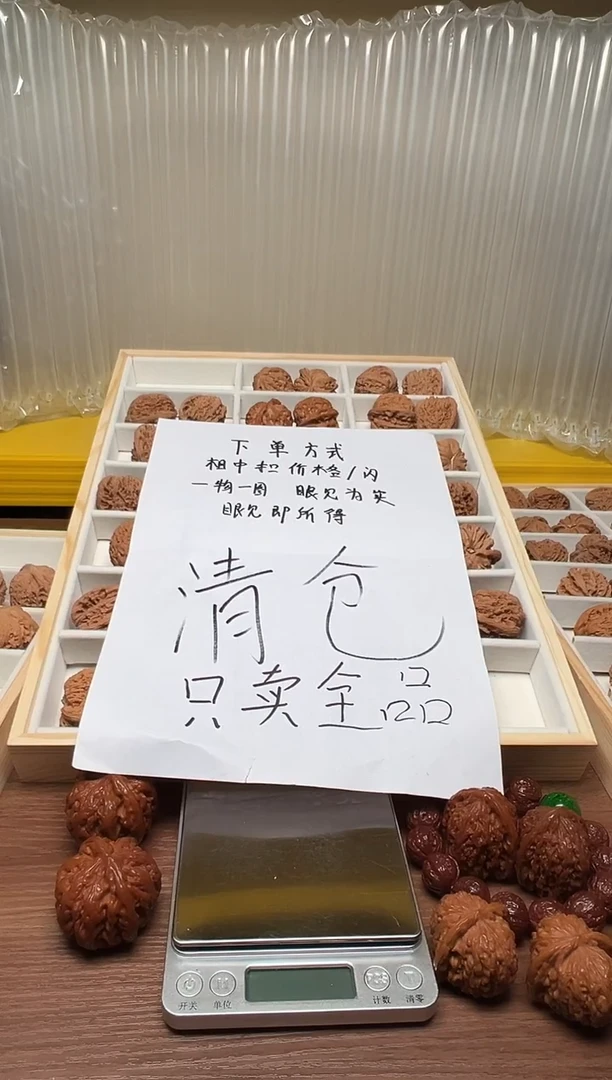 下单方式
相中扣价格/闪
一物一图 眼见为实
眼见即所得
清仓
只卖全品
开关 单位 计数 清零